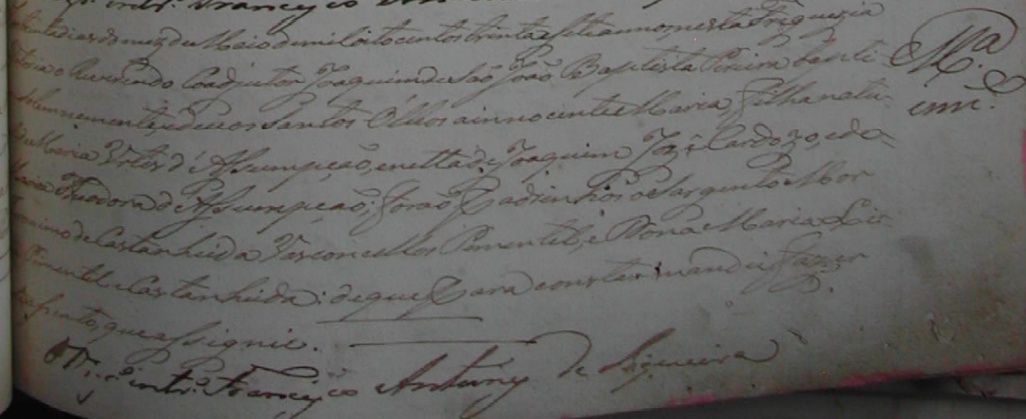 Francisco
dias do mez de Maio de mil oito centos trinta e sete annos nesta Freguezia
o Reverendo Coadjutor Joaquim de São João Baptista Pereira bapti-
solemnemente e deu os Santos Oleos a innocente Maria, filha natu-
Maria d'Assumpção, e netta de Joaquim Jozé Cardozo, e de
Theodora d'Assumpção; forão Padrinhos o Sargento Mor
de Castanheda Vasconcellos Pimentel, e Dona Maria
Pimentel Castanheda: de que para constar mandei fazer
que assignei.
Francisco Antonio de Siqueira
Mª
inn.e